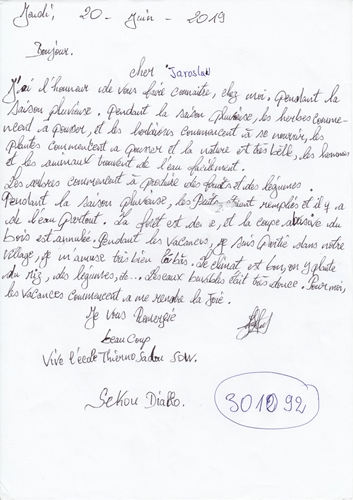 Jeudi, 20 - Juin - 2019
Bonjour.
cher Jaroslav
J'ai l'honneur de vous faire connaitre, chez moi. pendant la
saison pluvieuse. pendant la saison pluvieuse, les herbes comme-
ncent a pousser, et les commencent à se nourrir, les
plantes commencent a pousser et la nature est très belle, les hommes
et les animaux trouvent de l'eau facilement.
Les arbres commencent à produire des fruits et des légumes.
Pendant la saison pluvieuse, les sont remplis et il y a
de l'eau partout. La forêt est et la coupe abusive du
bois est annulée. Pendant les vacances, je suis dans notre
village, je m'amuse très bien là-bas. Le climat est bon, on y
du riz, des légumes, etc... trés douce. Pour moi,
les vacances commencent a me rendre la joie.
Je vous Remercie
beau Coup
Vive l'école Thierno Sadou SOW.
Sekou Diallo.
301092